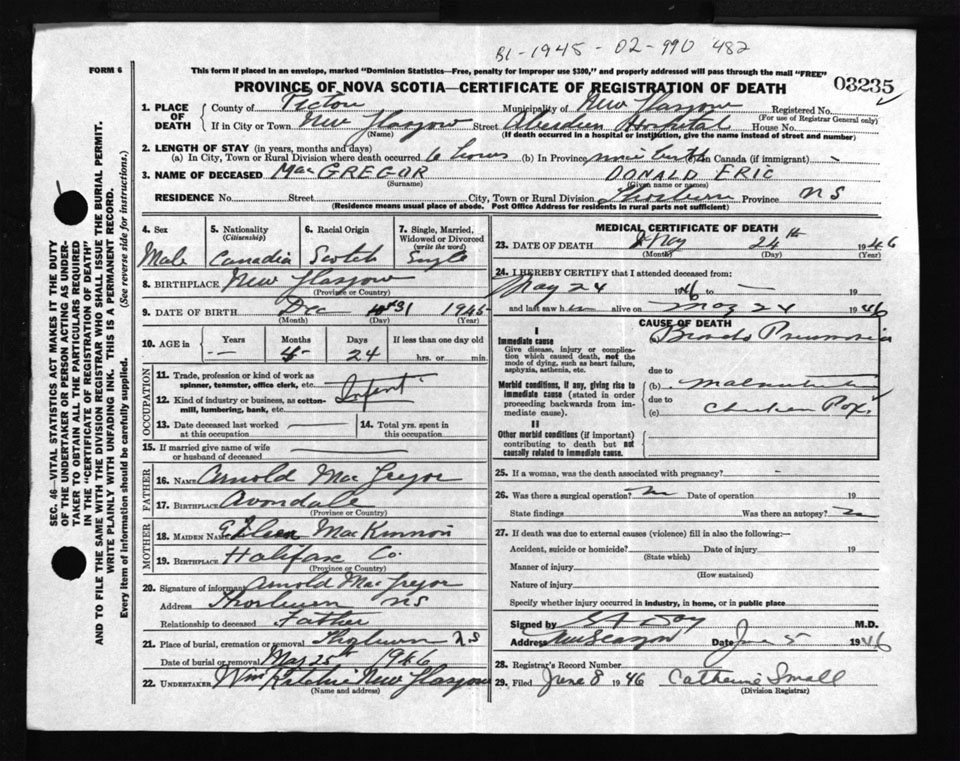 B1-1945-02-990 482
FORM 6
This form if placed in an envelope, marked "Dominion Statistics—Free, penalty for improper use $300," and properly addressed will pass through the mail "FREE"
PROVINCE OF NOVA SCOTIA—CERTIFICATE OF REGISTRATION OF DEATH
03235
1. PLACE OF DEATH County of Pictou Municipality of New Glasgow Registered No.
(Name) (For use of Registrar General only)
If in City or Town New Glasgow Street Aberdeen Hospital House No.
(If death occurred in a hospital or institution, give the name instead of street and number)
2. LENGTH OF STAY (in years, months and days)
(a) In City, Town or Rural Division where death occurred 6 hours (b) In Province since birth (c) In Canada (if immigrant) -
3. NAME OF DECEASED MacGREGOR DONALD ERIC
(Surname) (Given name or names)
RESIDENCE No. Street City, Town or Rural Division Thorburn Province NS
(Residence means usual place of abode. Post Office Address for residents in rural parts not sufficient)
4. Sex Male
5. Nationality (Citizenship) Canadia
6. Racial Origin Scotch
7. Single, Married, Widowed or Divorced (write the word) Single
8. BIRTHPLACE New Glasgow
(Province or Country)
9. DATE OF BIRTH Dec 31 1945
(Month) (Day) (Year)
10. AGE in Years -- Months 4 Days 24 If less than one day old hrs. or min.
OCCUPATION
11. Trade, profession or kind of work as spinner, teamster, office clerk, etc.
12. Kind of industry or business, as cotton-mill, lumbering, bank, etc. Infant
13. Date deceased last worked at this occupation
14. Total yrs. spent in this occupation
15. If married give name of wife or husband of deceased
FATHER
16. NAME Arnold MacGregor
17. BIRTHPLACE Avondale
(Province or Country)
MOTHER
18. MAIDEN NAME MacKinnon
19. BIRTHPLACE Halifax Co.
(Province or Country)
20. Signature of informant Arnold MacGregor
Address Thorburn NS
Relationship to deceased Father
21. Place of burial, cremation or removal Thorburn N.S
Date of burial or removal May 25th 1946
22. UNDERTAKER Wm Ritchie New Glasgow
(Name and address)
MEDICAL CERTIFICATE OF DEATH
23. DATE OF DEATH May 24th 1946
(Month) (Day) (Year)
24. I HEREBY CERTIFY that I attended deceased from:
May 24 1946 to - 19
and last saw him alive on May 24 1946
CAUSE OF DEATH
I
Immediate cause
Give disease, injury or complication which caused death, not the mode of dying, such as heart failure, asphyxia, asthenia, etc.
(a) Broncho Pneumonia
due to
Morbid conditions, if any, giving rise to immediate cause (stated in order proceeding backwards from immediate cause).
(b) Malnutrition
due to
(c) Chicken Pox.
II
Other morbid conditions (if important) contributing to death but not causally related to immediate cause.
25. If a woman, was the death associated with pregnancy? -
26. Was there a surgical operation? no Date of operation 19
State findings Was there an autopsy? no
27. If death was due to external causes (violence) fill in also the following:—
Accident, suicide or homicide? Date of injury 19
(State which)
Manner of injury
(How sustained)
Nature of injury
Specify whether injury occurred in industry, in home, or in public place
Signed by Day M.D.
Address New Glasgow Date June 5 1946
28. Registrar's Record Number
29. Filed June 8 1946 Catherine Small
(Division Registrar)
SEC. 46—VITAL STATISTICS ACT MAKES IT THE DUTY
OF THE UNDERTAKER OR PERSON ACTING AS UNDER-
TAKER TO OBTAIN ALL THE PARTICULARS REQUIRED
IN THE "CERTIFICATE OF REGISTRATION OF DEATH"
AND TO FILE THE SAME WITH THE DIVISION REGISTRAR WHO SHALL ISSUE THE BURIAL PERMIT.
WRITE PLAINLY WITH UNFADING INK. THIS IS A PERMANENT RECORD.
Every item of information should be carefully supplied. (See reverse side for instructions.)